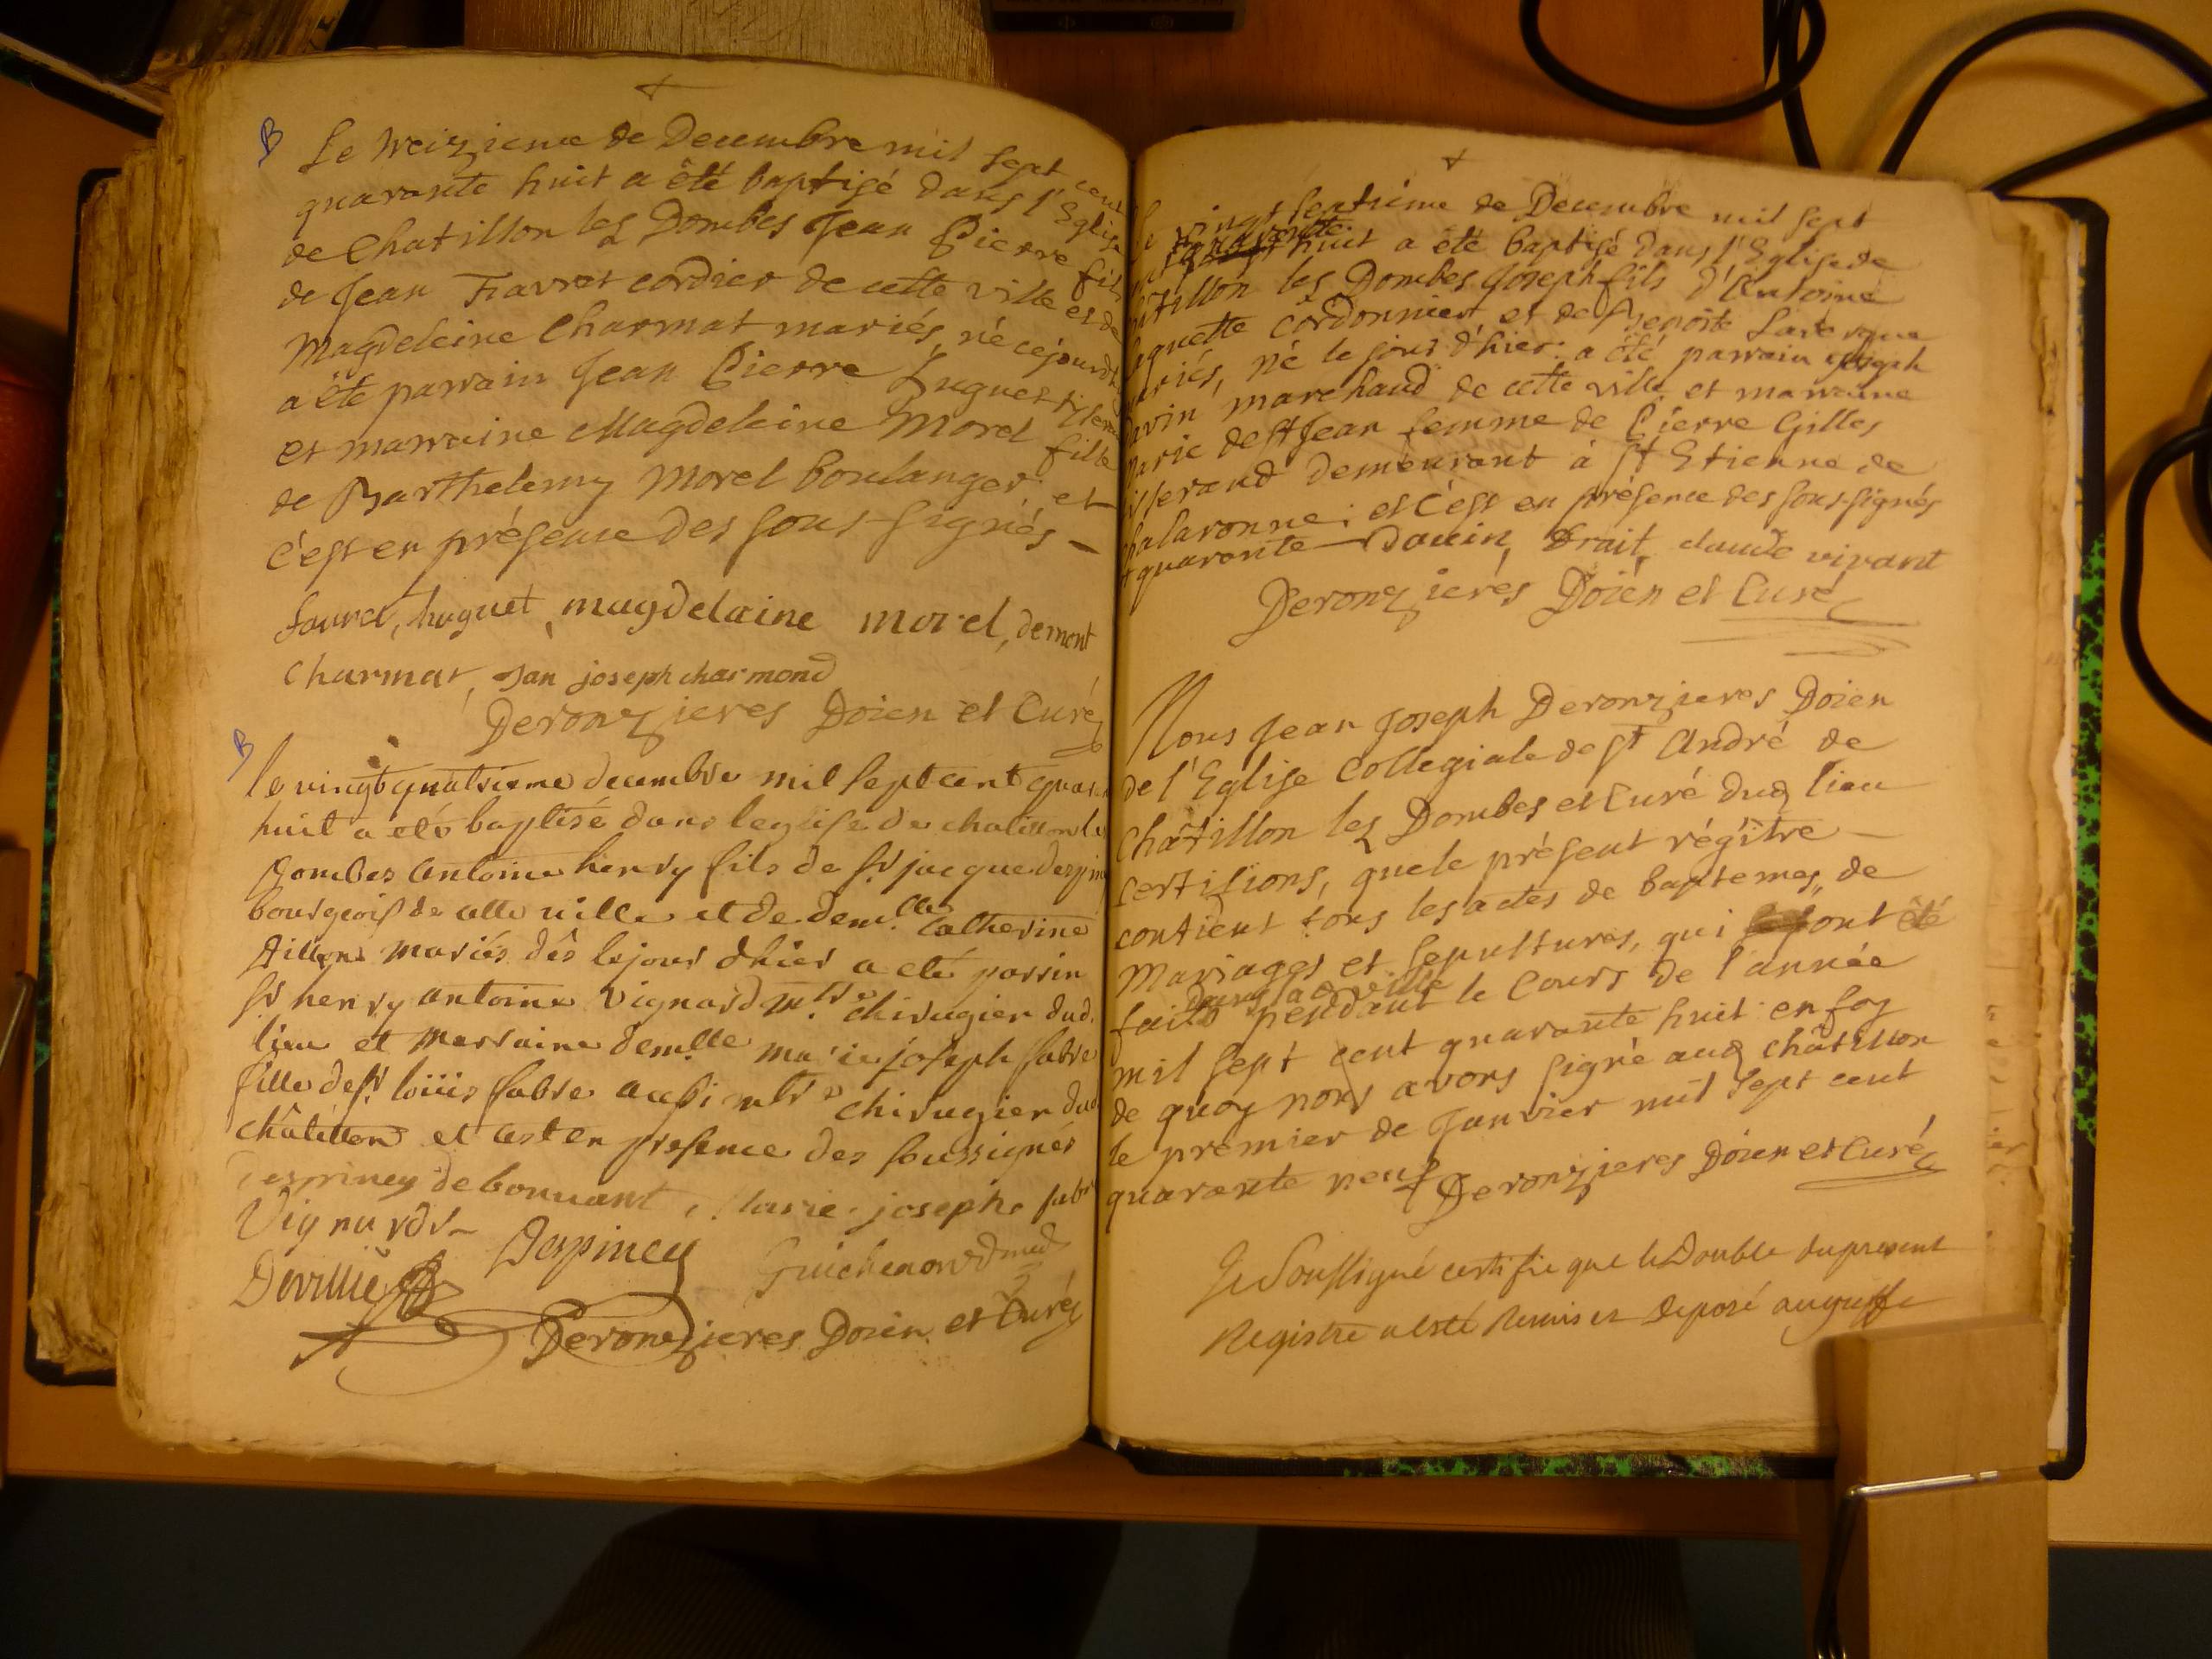 B
Le treizieme de Decembre mil sept cent
quarante huit a êté baptisé dans l'Eglise
de Chatillon les Dombes Jean Pierre fils
de Jean Favret cordier de cette ville et de
Magdeleine Charmat mariés, né cejourd'
a êté parrain Jean Pierre Huguet
et marraine Magdeleine Morel fille
de Barthelemy Morel boulanger; et
c'est en présence des sous-signés -
favret, huguet, magdelaine morel, demont
Charmat, Jan joseph charmond
Deronzieres Doien et Curé
B
le vingt quatrieme decembre mil sept cent quaran
huit a eté baptisé dans leglise de chatillon les
Dombes antoine henry fils de Sr jacque despin
bourgeois de cette ville et de demlle Catherine
Dillon mariés dês le jour d'hier a eté parrin
Sr henry antoine Vignard mtre chirugier dud.
lieu et marraine demlle marie joseph fabre
fille de Sr loüis fabre aussi mtre chirugier dud
châtillon et cest en presence des soussignés
Despiney de bonnant, Marie joseph fabre
Vignard
Despiney
Guichenon D med
Deville
Deronzieres Doien et Curé
le vingt septieme de Decembre mil sept
quarante
huit a êté baptisé dans l'Eglise de
hatillon les Dombes Joseph fils d'Antoine
aquette cordonnier et de Benoite
mariés, né le jour d'hier: a êté parrain Joseph
Davin marchand de cette ville et marraine
Marie de St Jean femme de Pierre Gilles
tisserand demeurant à St Etienne de
halaronne; et c'est en présence des sous-signés
+ quarante — Dauin, Brait, claude vivant
Deronzieres Doien et Curé
Nous Jean Joseph Deronzieres Doien
de l'Eglise Collegiale de St André de
Châtillon les Dombes et Curé dud lieu
certifions, que le présent régître —
contient tous les actes de baptemes, de
Mariages et sepultures, qui sont êté
dans lad ville
faits pendant le Cours de l'année
mil sept cent quarante huit: en foy
de quoy nous avons signé aud châtillon
le premier de Janvier mil sept cent
quarante neuf Deronzieres Doien et Curé
Je Soussigné certifie que le Double du present
Registre a esté Remis et Deposé au greffe